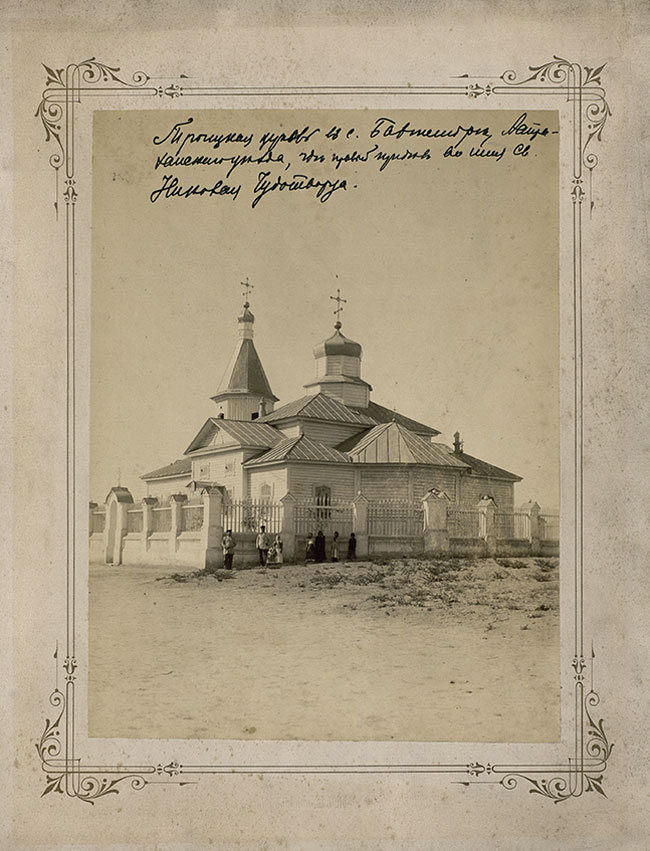 Троицкая церковь въ с. Башмак Астра-
ханского уезда, где правый придел во имя Св.
Николая Чудотворца.